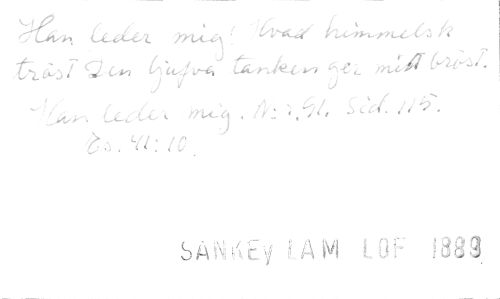 Han leder mig! Hvad himmelsk
tröst Den ljufva tanken ger mitt bröst.
Han leder mig. N:r 91. Sid. 115.
Es. 41:10.
SANKEY LAM LOF 1889